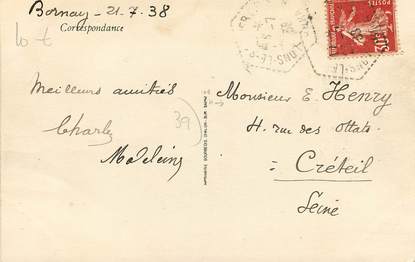 Bornay - 21-7-38
Correspondance
Meilleurs amitiés
Charly
Madeleine
39
Monsieur E. Henry
4. rue des Ottats
= Créteil =
Seine
POSTES